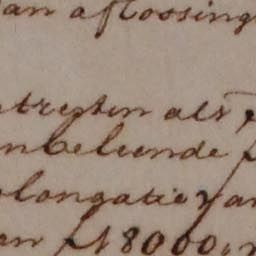 an aflossing
tresten als
nbeleende
olongatie van
an fl 8000,